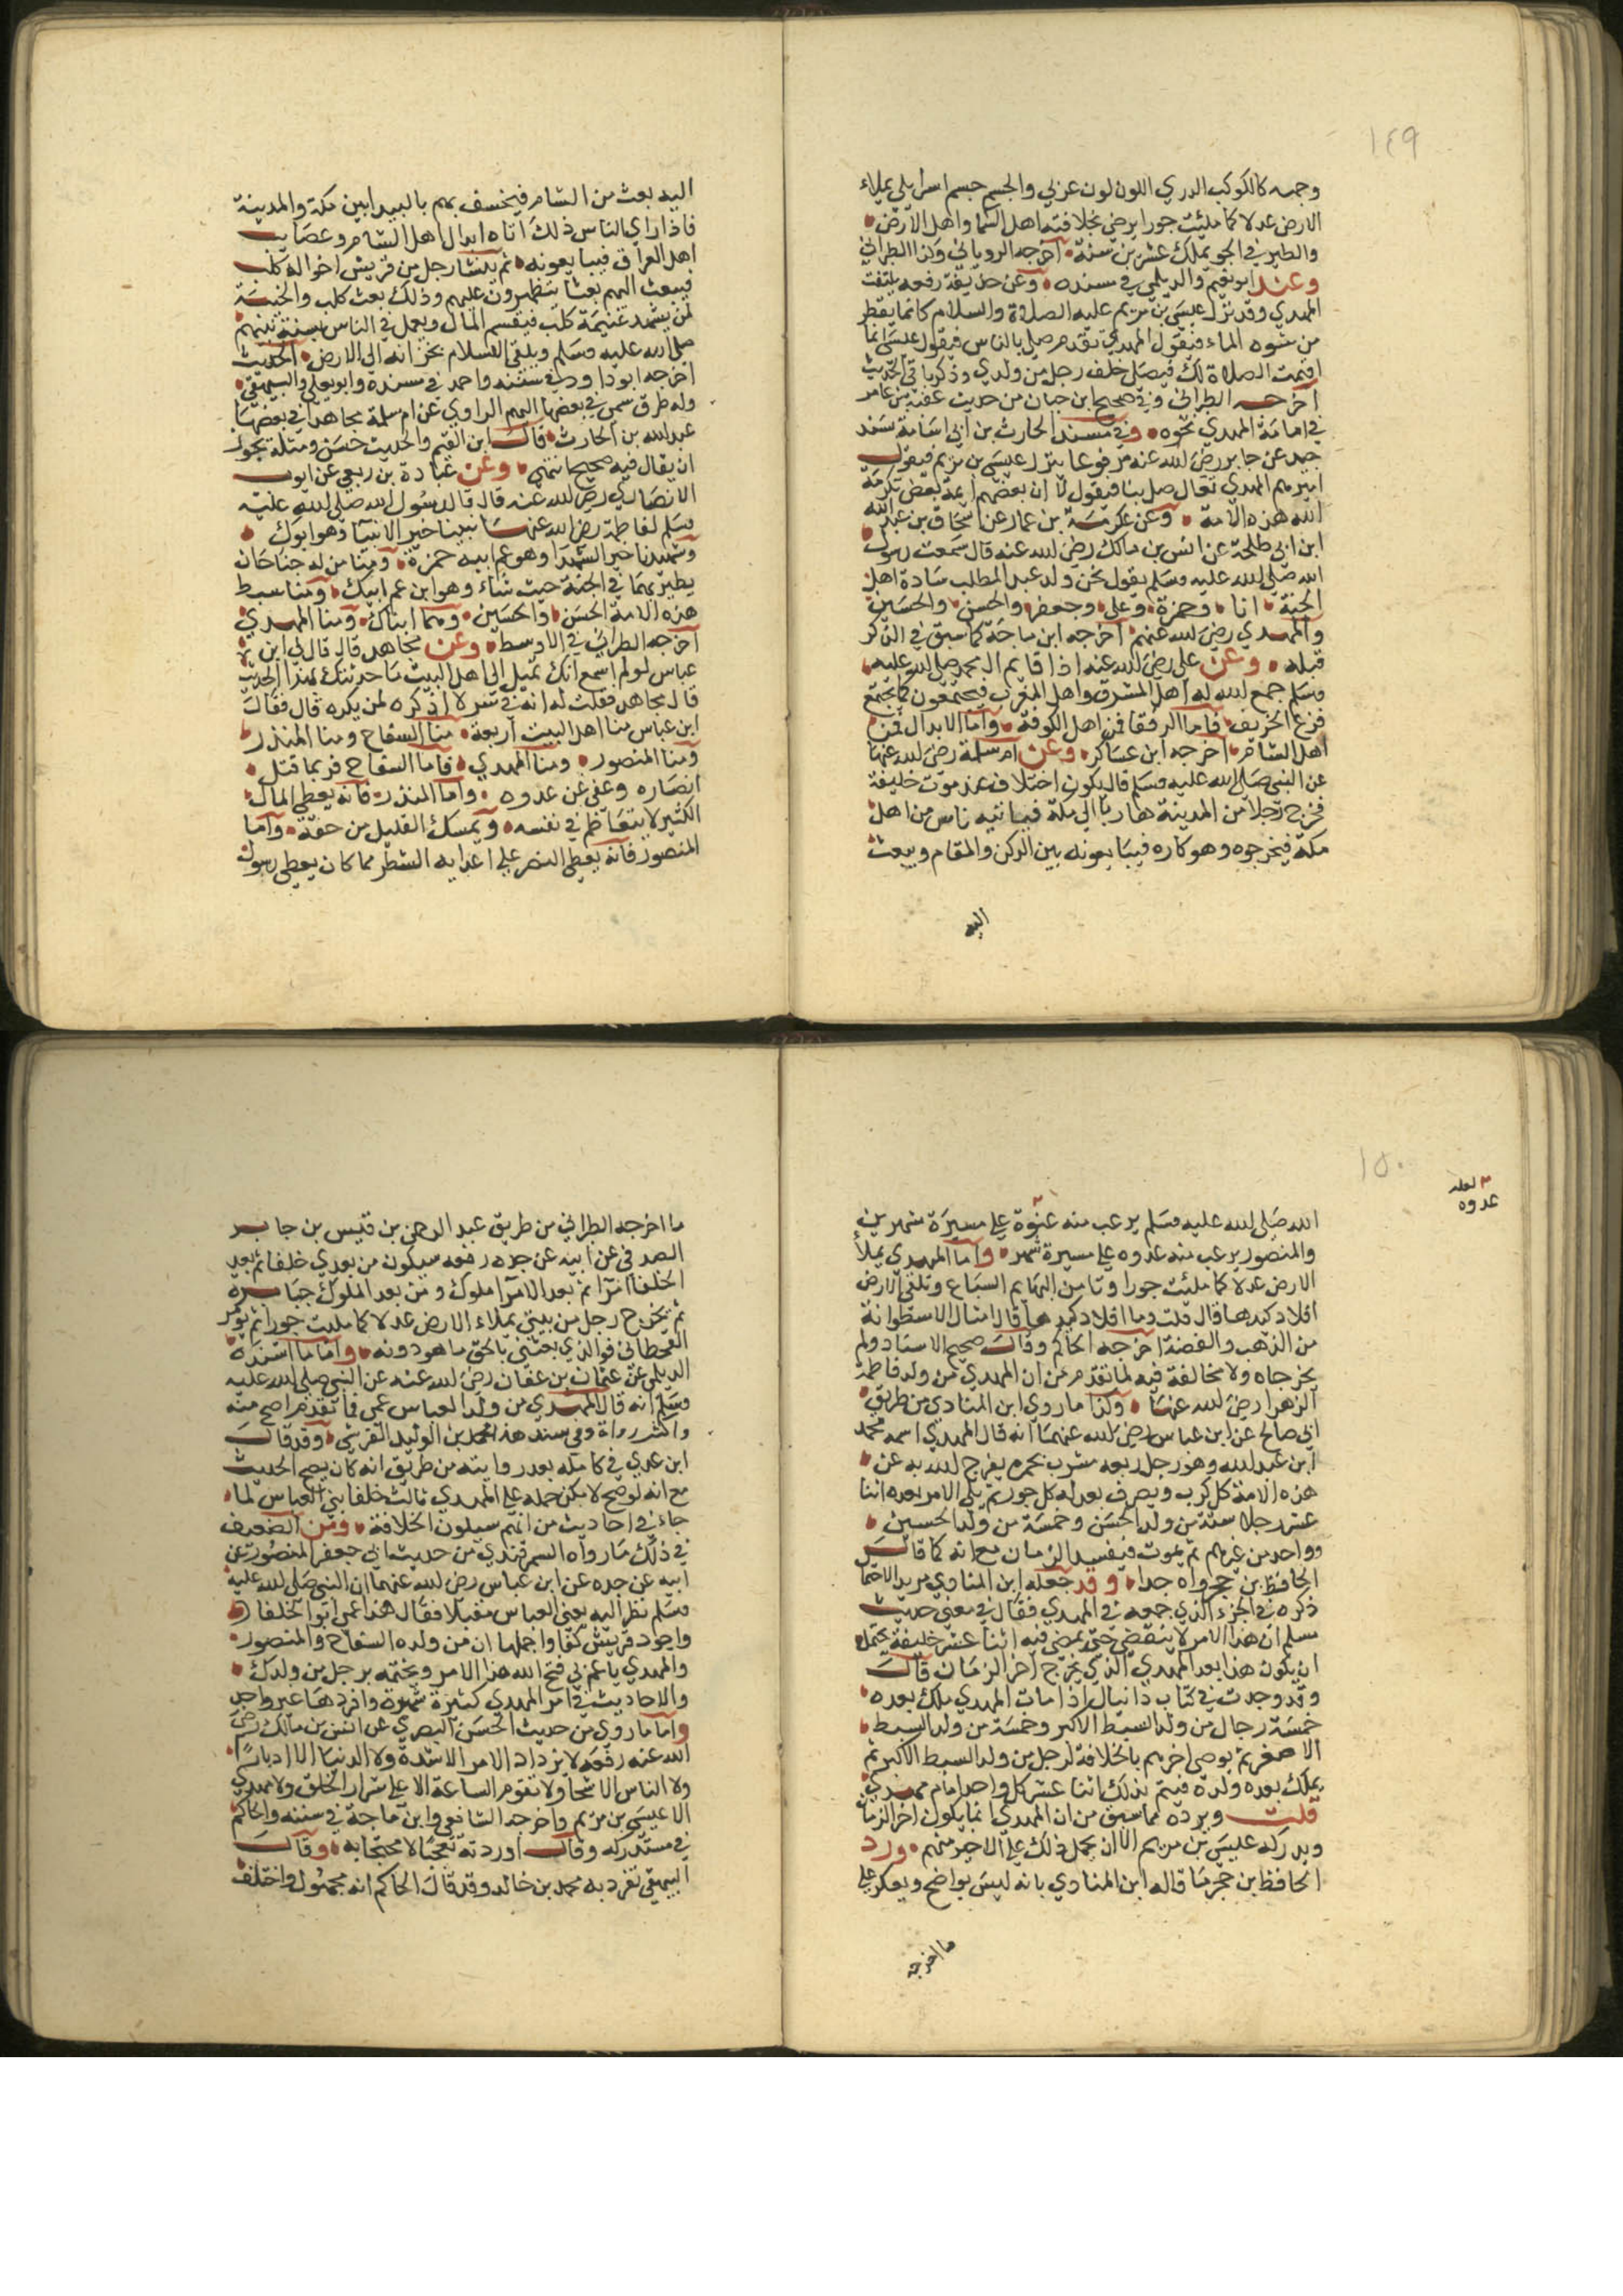 ١٤٩
وجهه كالكوكب الدري اللون لون عربي والجسم جسم اسرايلي يملاء
الارض عدلا كما ملئت جورا يرضي بخلافته اهل السما واهل الارض
والطير في الجو يملك عشرين سنة اخرجه الروياني وكذا الطبراني
وعند ابو نعيم والديلمي في مسنده وعن حذيفة رفعه يلتفت
المهدي وقد نزل عيسى بن مريم عليه الصلاة والسلام كانما يقطر
من شعره الماء فيقول المهدي تقدم صل بالناس فيقول عيسى انما
اقيمت الصلاة لك فيصلي خلف رجل من ولدي وذكر باقي الحديث
اخرجه الطبراني وفي صحيح ابن حبان من حديث عقبة بن عامر
في امامة المهدي نحوه وفي مسند الحارث بن ابي اسامة بسند
جيد عن جابر رضي الله عنه مرفوعا ينزل عيسى بن مريم فيقول
اميرهم المهدي تعال صل بنا فيقول لا ان بعضهم ايمة لبعض تكرمة
الله هذه الامة وعن عكرمة بن عمار عن اسحاق بن عبد الله
ابن ابي طلحة عن انس بن مالك رضي الله عنه قال سمعت رسول
الله صلى الله عليه وسلم يقول نحن ولد عبد المطلب سادة اهل
الجنة انا وحمزة وعلي وجعفر والحسن والحسين
والمهدي رضي الله عنهم اخرجه ابن ماجة كما سبق في الذكر
قبله وعن علي رضي الله عنه اذا قايم ال محمد صلى الله عليه
وسلم جمع الله له اهل المشرق واهل المغرب فيجتمعون كما يجتمع
قزع الخريف فاما الرفقا فمن اهل الكوفة واما الابدال فمن
اهل الشام اخرجه ابن عساكر وعن ام سلمة رضي الله عنها
عن النبي صلى الله عليه وسلم قال يكون اختلاف عند موت خليفة
فخرج رجلا من المدينة هاربا الي مكة فياتيه ناس من اهل
مكة فيخرجوه وهو كاره فيبايعونه بين الركن والمقام ويبعث
اليه
اليه بعث من الشام فيخسف بهم بالبيدا بين مكة والمدينة
فاذا راي الناس ذلك اتاه ابدال اهل الشام وعصايب
اهل العراق فيبايعونه ثم ينشا رجل من قريش اخواله كلب
فيبعث اليهم بعثا يظهرون عليهم وذلك بعث كلب والخيبة
لمن يشهد غنيمة كلب فيقسم المال ويعمل في الناس بسنة نبيهم
صلى الله عليه وسلم ويلقي الاسلام بجرانه الي الارض الحديث
اخرجه ابو داود في سننه واحمد في مسنده وابو يعلى والبيهقي
وله طرق سمي في بعضها المبهم الراوي عن ام سلمة مجاهدا في بعضها
عبد الله بن الحارث قال ابن القيم والحديث حسن ومثله يجوز
ان يقال فيه صحيح انتهى وعن عباده بن ربعي عن ابوب
الانصاري رضي الله عنه قال قال رسول الله صلى الله عليه
وسلم لفاطمة رضي الله عنها نبينا خير الانبيا وهو ابوك
وشهيدنا خير الشهدا وهو عم ابيه حمزة ومنا من له جناحان
يطير بهما في الجنة حيث شاء وهو ابن عم ابيك ومنا سبط
هذه الامة الحسن والحسين وهما ابناك ومنا المهدي
اخرجه الطبراني في الاوسط وعن مجاهد قال قال لي ابن
عباس لو لم اسمع انك تميل الي اهل البيت ما حدثتك بهذا الحديث
قال مجاهد فقلت له انه في ستر لا اذكره لمن يكره قال فقال
ابن عباس منا اهل البيت اربعة منا السفاح ومنا المنذر
ومنا المنصور ومنا المهدي فاما السفاح فربما قتل
انصاره وعفى عن عدوه واما المنذر فانه يعطي المال
الكثير لا يتعاظم في نفسه ويمسك القليل من حقه واما
المنصور فانه يعطي النصر علي اعدايه الشطر مما كان يعطي رسول
١٥٠
لعله
عدوه
الله صلى الله عليه وسلم يرعب منه عنوة علي مسيرة شهرين
والمنصور يرعب منه عدوه علي مسيرة شهر واما المهدي يملأ
الارض عدلا كما ملئت جورا وتامن البهايم السباع وتلقي الارض
افلاد كبدها قال قلت وما افلاد كبدها قال امثال الاسطوانة
من الذهب والفضة اخرجه الحاكم وقال صحيح الاسناد ولم
يخرجاه ولا مخالفة فيه لما تقدم من ان المهدي من ولد فاطمة
الزهرا رضي الله عنها وكذا ما روي ابن المنادي من طريق
ابي صالح عن ابن عباس رضي الله عنهما انه قال المهدي اسمه محمد
ابن عبد الله وهو رجل ربعه مشرب بحمره يفرج الله به عن
هذه الامة كل كرب ويصرف بعدله كل جور ثم يلي الامر بعده اثنا
عشر رجلا ستة من ولد الحسن وخمسة من ولد الحسين
وواحد من غيرهم ثم يموت فيفسد الزمان مع انه كما قال
الحافظ بن حجر واه جدا وقد جعله ابن المنادي مريدا لاحتما
ذكره في الجزء الذي جمعه في المهدي فقال في معنى حديث
مسلم ان هذا الامر لا ينقضي حتى يمضي فيه اثنا عشر خليفة يحتمل
ان يكون هذا بعد المهدي الذي يخرج اخر الزمان قال
وقد وجدت في كتاب دانيال اذا مات المهدي ملك بعده
خمسة رجال من ولد السبط الاكبر وخمسة من ولد السبط
الاصغر ثم يوصي اخرهم بالخلافة لرجل من ولد السبط الاكبر ثم
يملك بعده ولده فيتم بذلك اثنا عشر كل واحد امام مهدي
قلت ويرده ما سبق من ان المهدي انما يكون اخر الزمان
ويدركه عيسى بن مريم الا ان يحمل ذلك علي الاخير منهم ورد
الحافظ بن حجر ما قاله ابن المنادي بانه ليس بواضح ويعكر علي
ما اخرجه
ما اخرجه الطبراني من طريق عبد الرحمن بن قيس بن جابر
الصدفي عن ابيه عن جده رفعه سيكون من بعدي خلفا ثم بعد
الخلفا امرا ثم بعد الامرا ملوك ومن بعد الملوك جبابرة
ثم يخرج رجل من بيتي يملاء الارض عدلا كما مليت جورا ثم يؤمر
القحطاني فوالذي بعثني بالحق ما هو دونه واما ما اسنده
الديلمي عن عثمان بن عفان رضي الله عنه عن النبي صلى الله عليه
وسلم انه قال المهدي من ولد العباس عمي فما تقدم اصح منه
واكثر رواة وفي سند هذا محمد بن الوليد القرشي وقد قال
ابن عدي في كامله بعد روايته من طريق انه كان يضع الحديث
مع انه لو صح لامكن حمله علي المهدي ثالث خلفا بني العباس لما
جاء في احاديث من انهم سيلون الخلافة ومن الضعيف
في ذلك ما رواه السمرقندي من حديث ابي جعفر المنصور عن
ابيه عن جده عن ابن عباس رضي الله عنهما ان النبي صلى الله عليه
وسلم نظر اليه يعني العباس مقبلا فقال هذا عمي ابو الخلفا
واجود قريش كفا واجملها ان من ولده السفاح والمنصور
والمهدي يا عم بي فتح الله هذا الامر ويختمه برجل من ولدك
والاحاديث في امر المهدي كثيرة شهيرة وافردها غير واحد
واما ما روي من حديث الحسن البصري عن انس بن مالك رضي
الله عنه رفعه لا يزداد الامر الا شدة ولا الدنيا الا ادبارا
ولا الناس الا شحا ولا تقوم الساعة الا علي شرار الخلق ولا مهدي
الا عيسى بن مريم واخرجه الشافعي وابن ماجة في سننه والحاكم
في مستدركه وقال اوردته تعجبا لا محتجا به وقال
البيهقي تفرد به محمد بن خالد وقد قال الحاكم انه مجهول واختلف